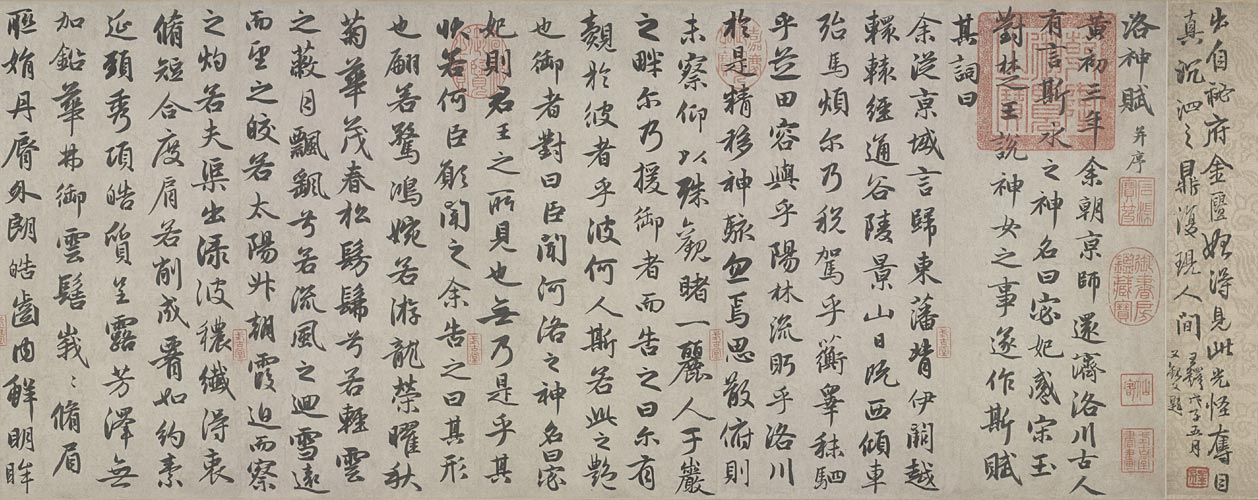 出自秘府金匱始得見此光怪奪目
真沉泗之鼎復現人間
洛神賦 并序
黃初三年余朝京師還濟洛川古人
有言斯水之神名曰宓妃感宋玉
對楚王說神女之事遂作斯賦
其詞曰
余從京域言歸東藩背伊闕越
轘轅經通谷陵景山日既西傾車
殆馬煩尔乃稅駕乎蘅皋秣駟
乎芝田容與乎陽林流眄乎洛川
於是精移神駭忽焉思散俯則
未察仰以殊觀睹一麗人于巖
之畔尔乃援御者而告之曰尔有
覿於彼者乎彼何人斯若此之豔
也御者對曰臣聞河洛之神名曰宓
妃則君王之所見也無乃是乎其
狀若何臣願聞之余告之曰其形
也翩若驚鴻婉若游龍榮曜秋
菊華茂春松髣髴兮若輕雲
之蔽月飄颻兮若流風之迴雪遠
而望之皎若太陽升朝霞迫而察
之灼若夫渠出淥波穠纖得衷
脩短合度肩若削成腰如約素
延頸秀項皓質呈露芳澤無
加鉛華弗御雲髻峩〻脩眉
聯娟丹脣外朗皓齒內鮮明眸